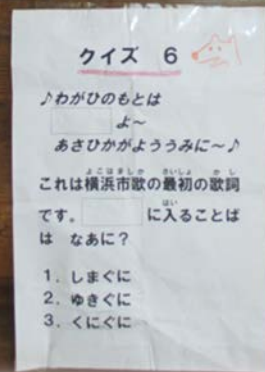 クイズ　６
♪わがひのもとは
よ～
あさひかがよううみに～♪
これは横浜市歌の最初の歌詞
です。　　　に入ることば
は　なあに？
１．しまぐに
２．ゆきぐに
３．くにぐに